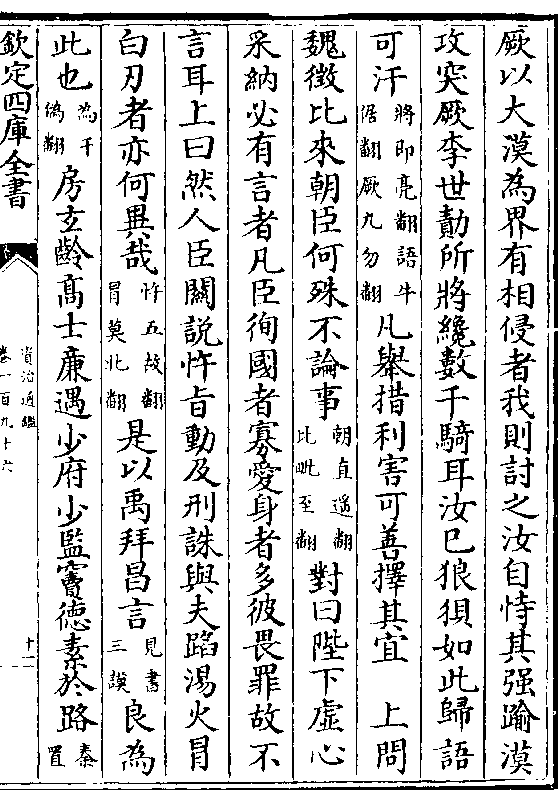 厥以大漠為界有相侵者我則討之汝自恃其强踰漠
攻突厥李世勣所將纔數千騎耳汝已狼狽如此歸語
可汗將即亮翻語牛倨翻厥九勿翻凡舉措利害可善擇其宜　上問
魏徵比來朝臣何殊不論事朝直遥翻比毗至翻對曰陛下虛心
采納必有言者凡臣徇國者寡愛身者多彼畏罪故不
言耳上曰然人臣關說忤旨動及刑誅與夫蹈湯火冒
白刃者亦何異哉忤五故翻冒莫北翻是以禹拜昌言見書三謨良為
此也為于偽翻房玄齡髙士亷遇少府少監竇德素於路秦置
欽定四庫全書
資治通鑑
卷一百九十六
十一